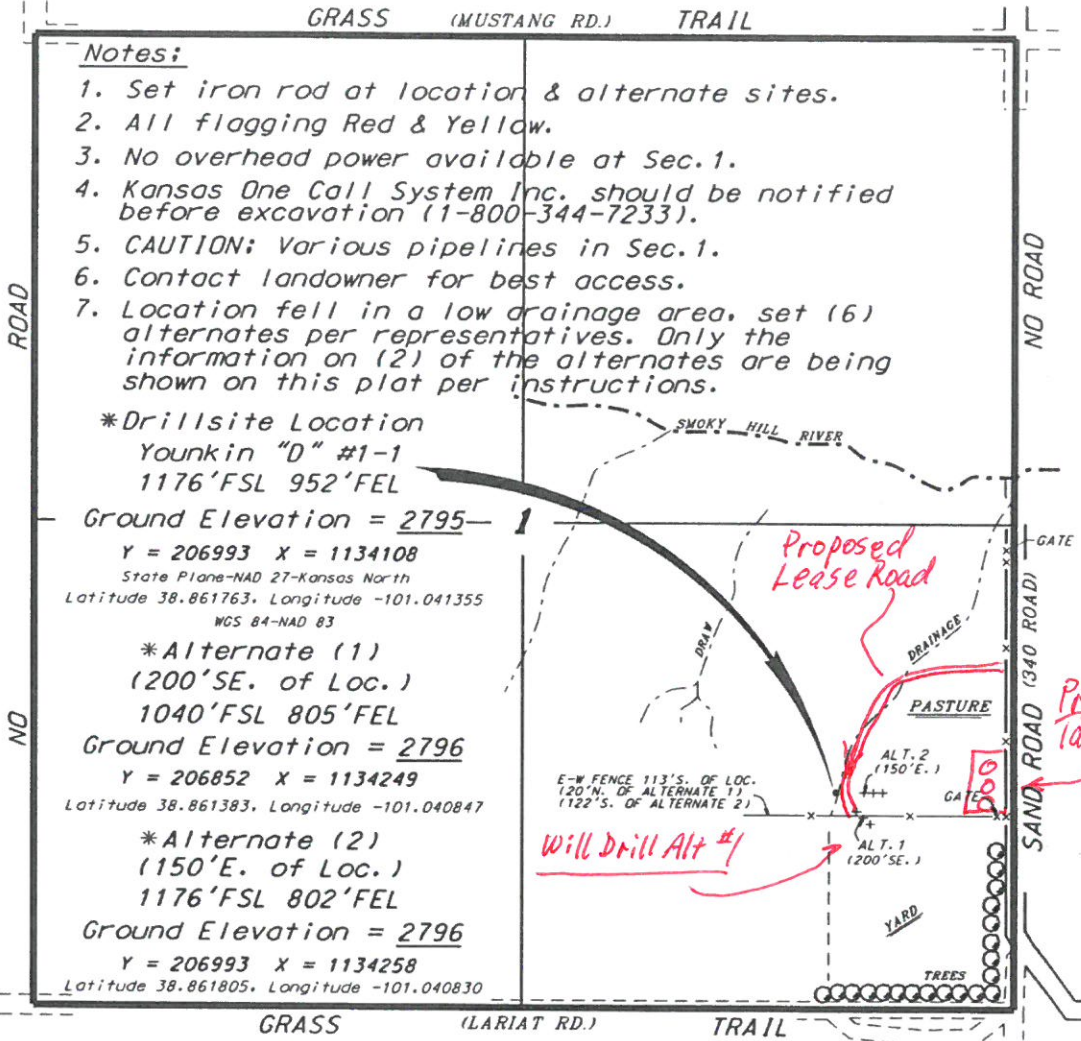 GRASS (MUSTANG RD.) TRAIL
Notes:
1. Set iron rod at location & alternate sites.
2. All flagging Red & Yellow.
3. No overhead power available at Sec.1.
4. Kansas One Call System Inc. should be notified
before excavation (1-800-344-7233).
5. CAUTION: Various pipelines in Sec.1.
6. Contact landowner for best access.
7. Location fell in a low drainage area, set (6)
alternates per representatives. Only the
information on (2) of the alternates are being
shown on this plat per instructions.
*Drillsite Location
Younkin "D" #1-1
1176'FSL 952'FEL
Ground Elevation = 2795
Y = 206993 X = 1134108
State Plane-NAD 27-Kansas North
Latitude 38.861763, Longitude -101.041355
WGS 84-NAD 83
*Alternate (1)
(200'SE. of Loc.)
1040'FSL 805'FEL
Ground Elevation = 2796
Y = 206852 X = 1134249
Latitude 38.861383, Longitude -101.040847
*Alternate (2)
(150'E. of Loc.)
1176'FSL 802'FEL
Ground Elevation = 2796
Y = 206993 X = 1134258
Latitude 38.861805, Longitude -101.040830
NO ROAD
1
SMOKY HILL RIVER
NO ROAD
GATE
Proposed
Lease Road
DRAW
DRAINAGE
PASTURE
SAND ROAD (340 ROAD)
ALT.2
(150'E.)
GATE
E-W FENCE 113'S. OF LOC.
(20'N. OF ALTERNATE 1)
(122'S. OF ALTERNATE 2)
Will Drill Alt #1
ALT.1
(200'SE.)
YARD
TREES
GRASS (LARIAT RD.) TRAIL
1